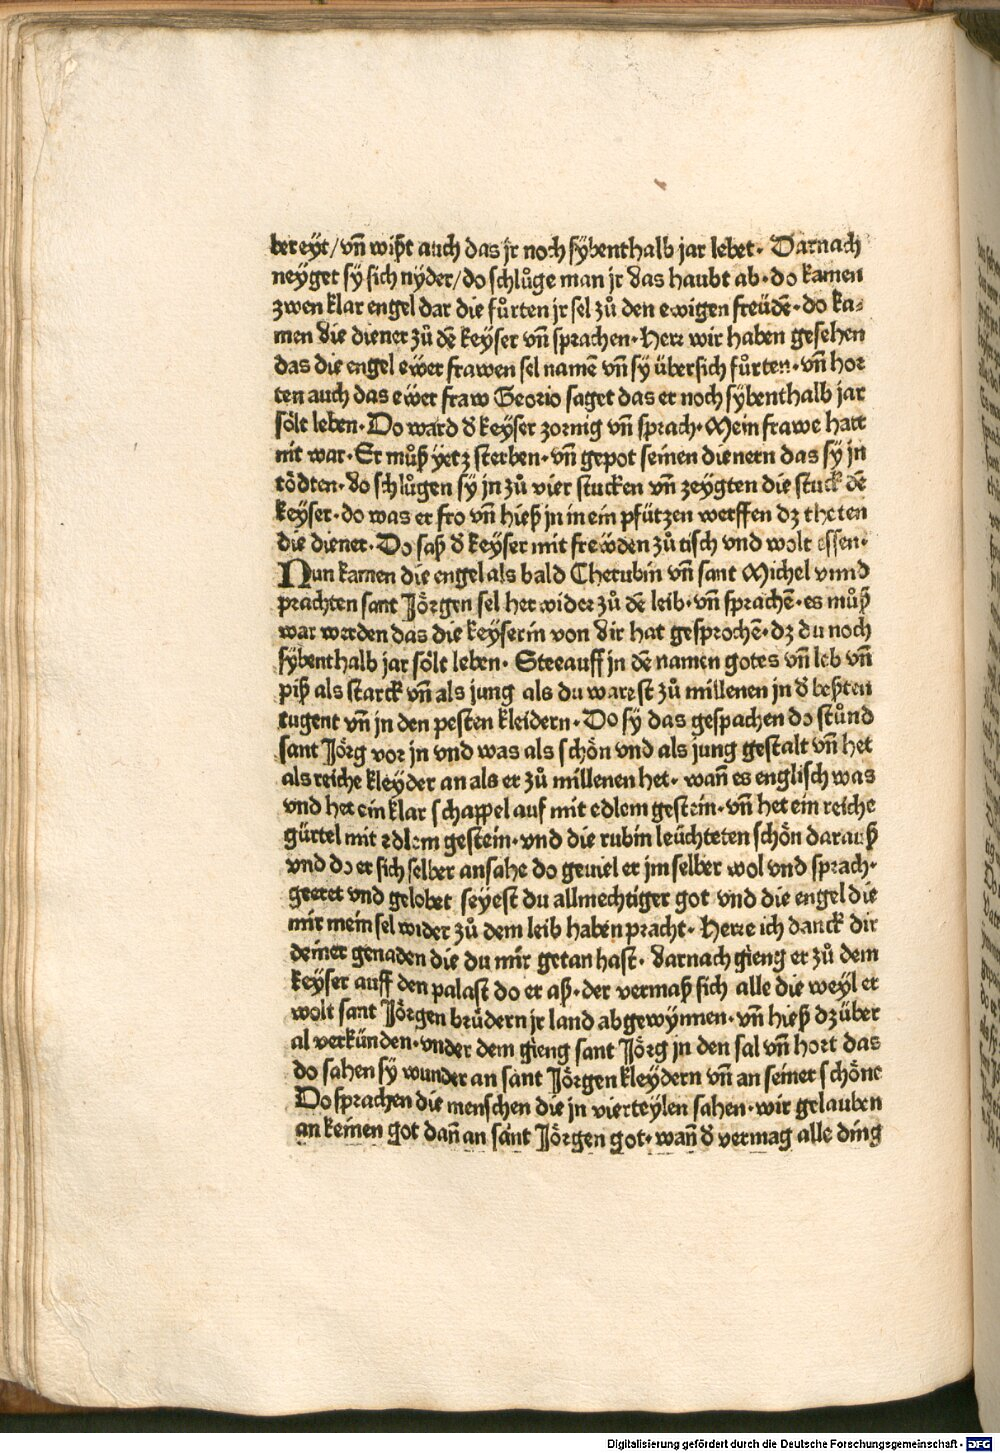 bereyt/vñ wißt auch das jr noch sybenthalb jar lebet· Darnach
neyget sy sich nyder/do schlůge man jr das haubt ab·do kamen
zwen klar engel dar die fůrten jr sel zů den ewigen freüdē·do ka⸗
men die diener zů dē keyser vñ sprachen·Herr wir haben gesehen
das die engel ewer frawen sel namē vñ sy übersich fůrten·vñ hor
ten auch das ewer fraw Georio saget das er noch sybenthalb jar
sölt leben·Do ward d̄ keyser zornig vñ sprach·Mein frawe hatt
nit war·Er můß yetz sterben·vñ gepot seinen dienern das sy jn
tödten·do schlůgen sy jn zů vier stucken vñ zeygten die stuck dē
keyser·do was er fro vñ hieß jn in ein pfützen werffen dz theten
die diener·Do saß d̄ keyser mit frewden zů tisch vnd wolt essen·
Nun kamen die engel als bald Cherubin vñ sant Michel vnnd
prachten sant Jörgen sel her wider zů dē leib·vñ sprachē·es můß
war werden das die keyserin von dir hat gesprochē·dz du noch
sybenthalb jar sölt leben· Steeauff jn dē namen gotes vñ leb vñ
piß als starck vñ als jung als du warest zů millenen jn d̄ beßten
tugent vñ in den pesten kleidern·Do sy das gespachen do stůnd
sant Jörg vor jn vnd was als schön vnd als jung gestalt vñ het
als reiche kleyder an als er zů millenen het· wañ es englisch was
vnd het ein klar schappel auf mit edlem gestein·vñ het ein reiche
gürtel mit edlem gestein·vnd die rubin leüchteten schön darauß
vnd do er sich selber ansahe do geuiel er jm selber wol vnd sprach·
geeret vnd gelobet seyest du allmechtiger got vnd die engel die
mir mein sel wider zů dem leib haben pracht· Herre ich danck dir
deiner genaden die du mir getan hast· darnach gieng er zů dem
keyser auff den palast do er aß·der vermaß sich alle die weyl er
wolt sant Jörgen brüdern jr land abgewynnen·vñ hieß dz über
al verkünden·vnder dem gieng sant Jörg in den sal vñ hort das
do sahen sy wunder an sant Jörgen kleydern vñ an seiner schöne
Do sprachen die menschen die jn vierteylen sahen·wir gelauben
an keinen got dañ an sant Jörgen got·wañ d̄ vermag alle ding
Digitalisierung gefördert durch die Deutsche Forschungsgemeinschaft - DFG